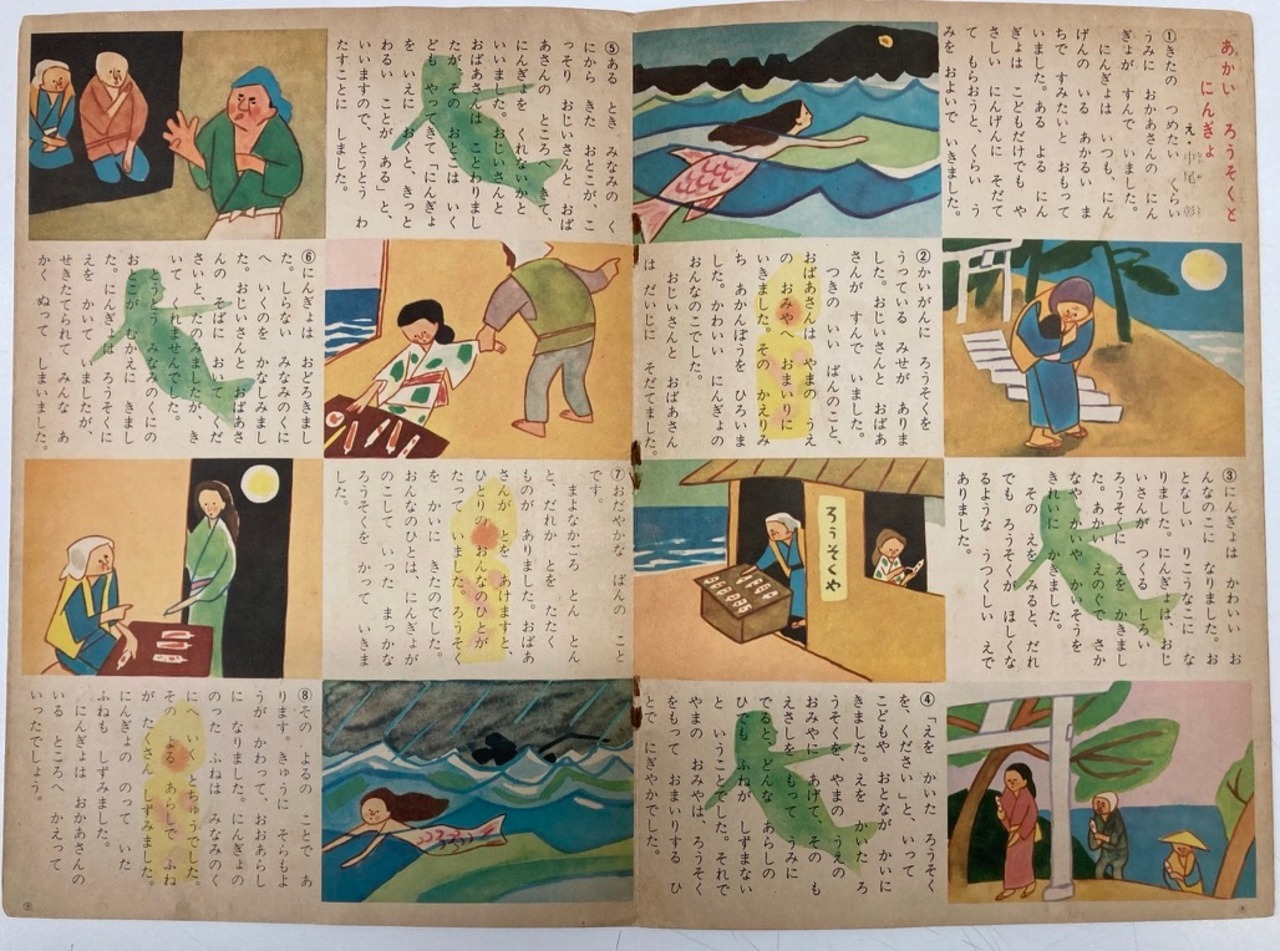 あかい ろうそくと
にんぎょ
え・中尾 彰
①きたの つめたい くらい
うみに おかあさんの にん
ぎょが すんで いました。
にんぎょは いつも、にん
げんの いる あかるい ま
ちで すみたいと おもって
いました。ある よる にん
ぎょは こどもだけでも や
さしい にんげんに そだて
て もらおうと、くらい う
みを およいで いきました。
②かいがんに ろうそくを
うっている みせが ありま
した。おじいさんと おばあ
さんが すんで いました。
つきの いい ばんのこと、
おばあさんは やまの うえ
の おみやへ おまいりに
いきました。その かえりみ
ち あかんぼうを ひろいま
した。かわいい にんぎょの
おんなのこでした。
おじいさんと おばあさん
は だいじに そだてました。
③にんぎょは かわいい お
んなのこに なりました。お
となしい りこうなこに な
りました。にんぎょは、おじ
いさんが つくる しろい
ろうそくに えを かきまし
た。あかい えのぐで さか
なや かいや かいそうを
きれいに かきました。
その えを みると、だれ
でも ろうそくが ほしくな
るような うつくしい えで
ありました。
ろうそくや
④「えを かいた ろうそく
を、ください」と、いって
こどもや おとなが かいに
きました。えを かいた ろ
うそくを、やまの うえの
おみやに あげて、その も
えさしを もって うみに
でると、どんな あらしの
ひでも ふねが しずまない
と いうことでした。それで
やまの おみやは、ろうそく
をもって おまいりする ひ
とで にぎやかでした。
⑤ある とき みなみの く
にから きた おとこが、こ
っそり おじいさんと おば
あさんの ところへ きて、
にんぎょを くれないかと
いいました。おじいさんと
おばあさんは ことわりまし
たが、その おとこは いく
ども やってきて「にんぎょ
を いえに おくと、きっと
わるい ことが ある」と、
いいますので、とうとう わ
たすことに しました。
⑥にんぎょは おどろきまし
た。しらない みなみのくに
へ いくのを かなしみまし
た。おじいさんと おばあさ
んの そばに おいて くだ
さいと、たのみましたが、き
いて くれませんでした。
とうとう みなみのくにの
おとこが むかえに きまし
た。にんぎょは ろうそくに
えを かいて いましたが、
せきたてられて みんな あ
かく ぬって しまいました。
⑦おだやかな ばんの こと
です。
まよなかごろ とん とん
と、だれか とを たたく
ものが ありました。おばあ
さんが とを あけますと、
ひとりの おんなのひとが
たって いました。ろうそく
を かいに きたのでした。
おんなのひとは、にんぎょが
のこして いった まっかな
ろうそくを かって いきま
した。
⑧その よるの ことで あ
ります。きゅうに そらもよ
うが かわって、おおあらし
に なりました。にんぎょの
のった ふねは みなみのく
にへ いく とちゅうでした。
その よる あらしで ふね
が たくさん しずみました。
にんぎょの のって いた
ふねも しずみました。
にんぎょは おかあさんの
いる ところへ かえって
いったでしょう。